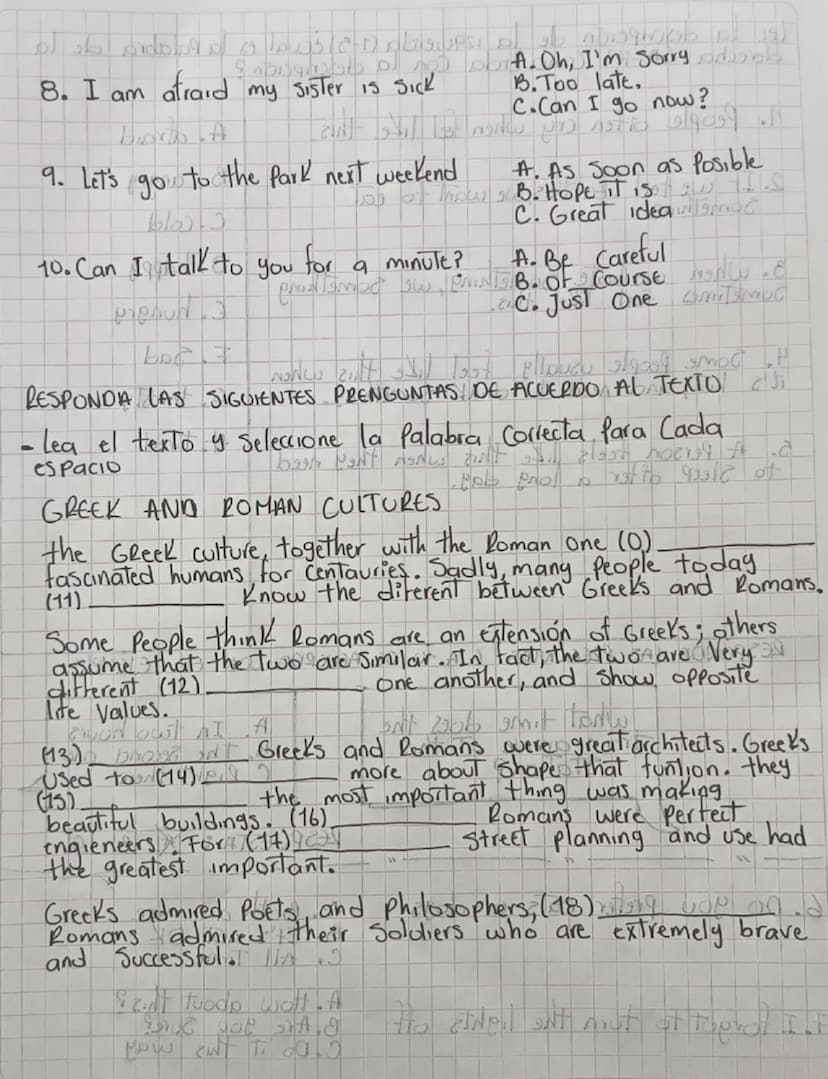 8. I am afraid my sister is sick
A. Oh, I'm sorry
B. Too late.
C. Can I go now?
9. Let's go to the Park next weekend
A. As soon as Posible
B. Hope it is
C. Great idea
10. Can I talk to you for a minute?
A. Be Careful
B. Of Course
C. Just One
RESPONDA LAS SIGUIENTES PRENGUNTAS DE ACUERDO AL TEXTO
- Lea el texto y Seleccione la Palabra Correcta Para Cada
espacio
GREEK AND ROMAN CULTURES
the Greek culture, together with the Roman one (0)____________
fascinated humans for Centauries. Sadly, many People today
(11)____________ Know the diferent between Greeks and Romans.
Some People think Romans are an extension of Greeks; others
assume that the two are similar. In fact, the two are Very
different (12)____________ one another, and show opposite
life Values.
(13)____________ Greeks and Romans were great architects. Greeks
Used to (14)____________ more about Shape that funtion. they
(15)____________ the most important thing was making
beautiful buildings. (16)____________ Romans were Perfect
engieneers. For (17)____________ Street planning and use had
the greatest important.
Greeks admired Poets and Philosophers; (18)____________
Romans admired their Soldiers who are extremely brave
and Successful.